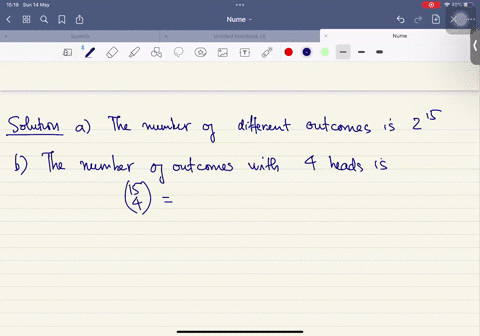 15:19 Sun 14 May
49%
Nume
Untitled Notebook (1)
Nume
Solution a) The number of different outcomes is 2^15
b) The number of outcomes with 4 heads is
(15 4) =